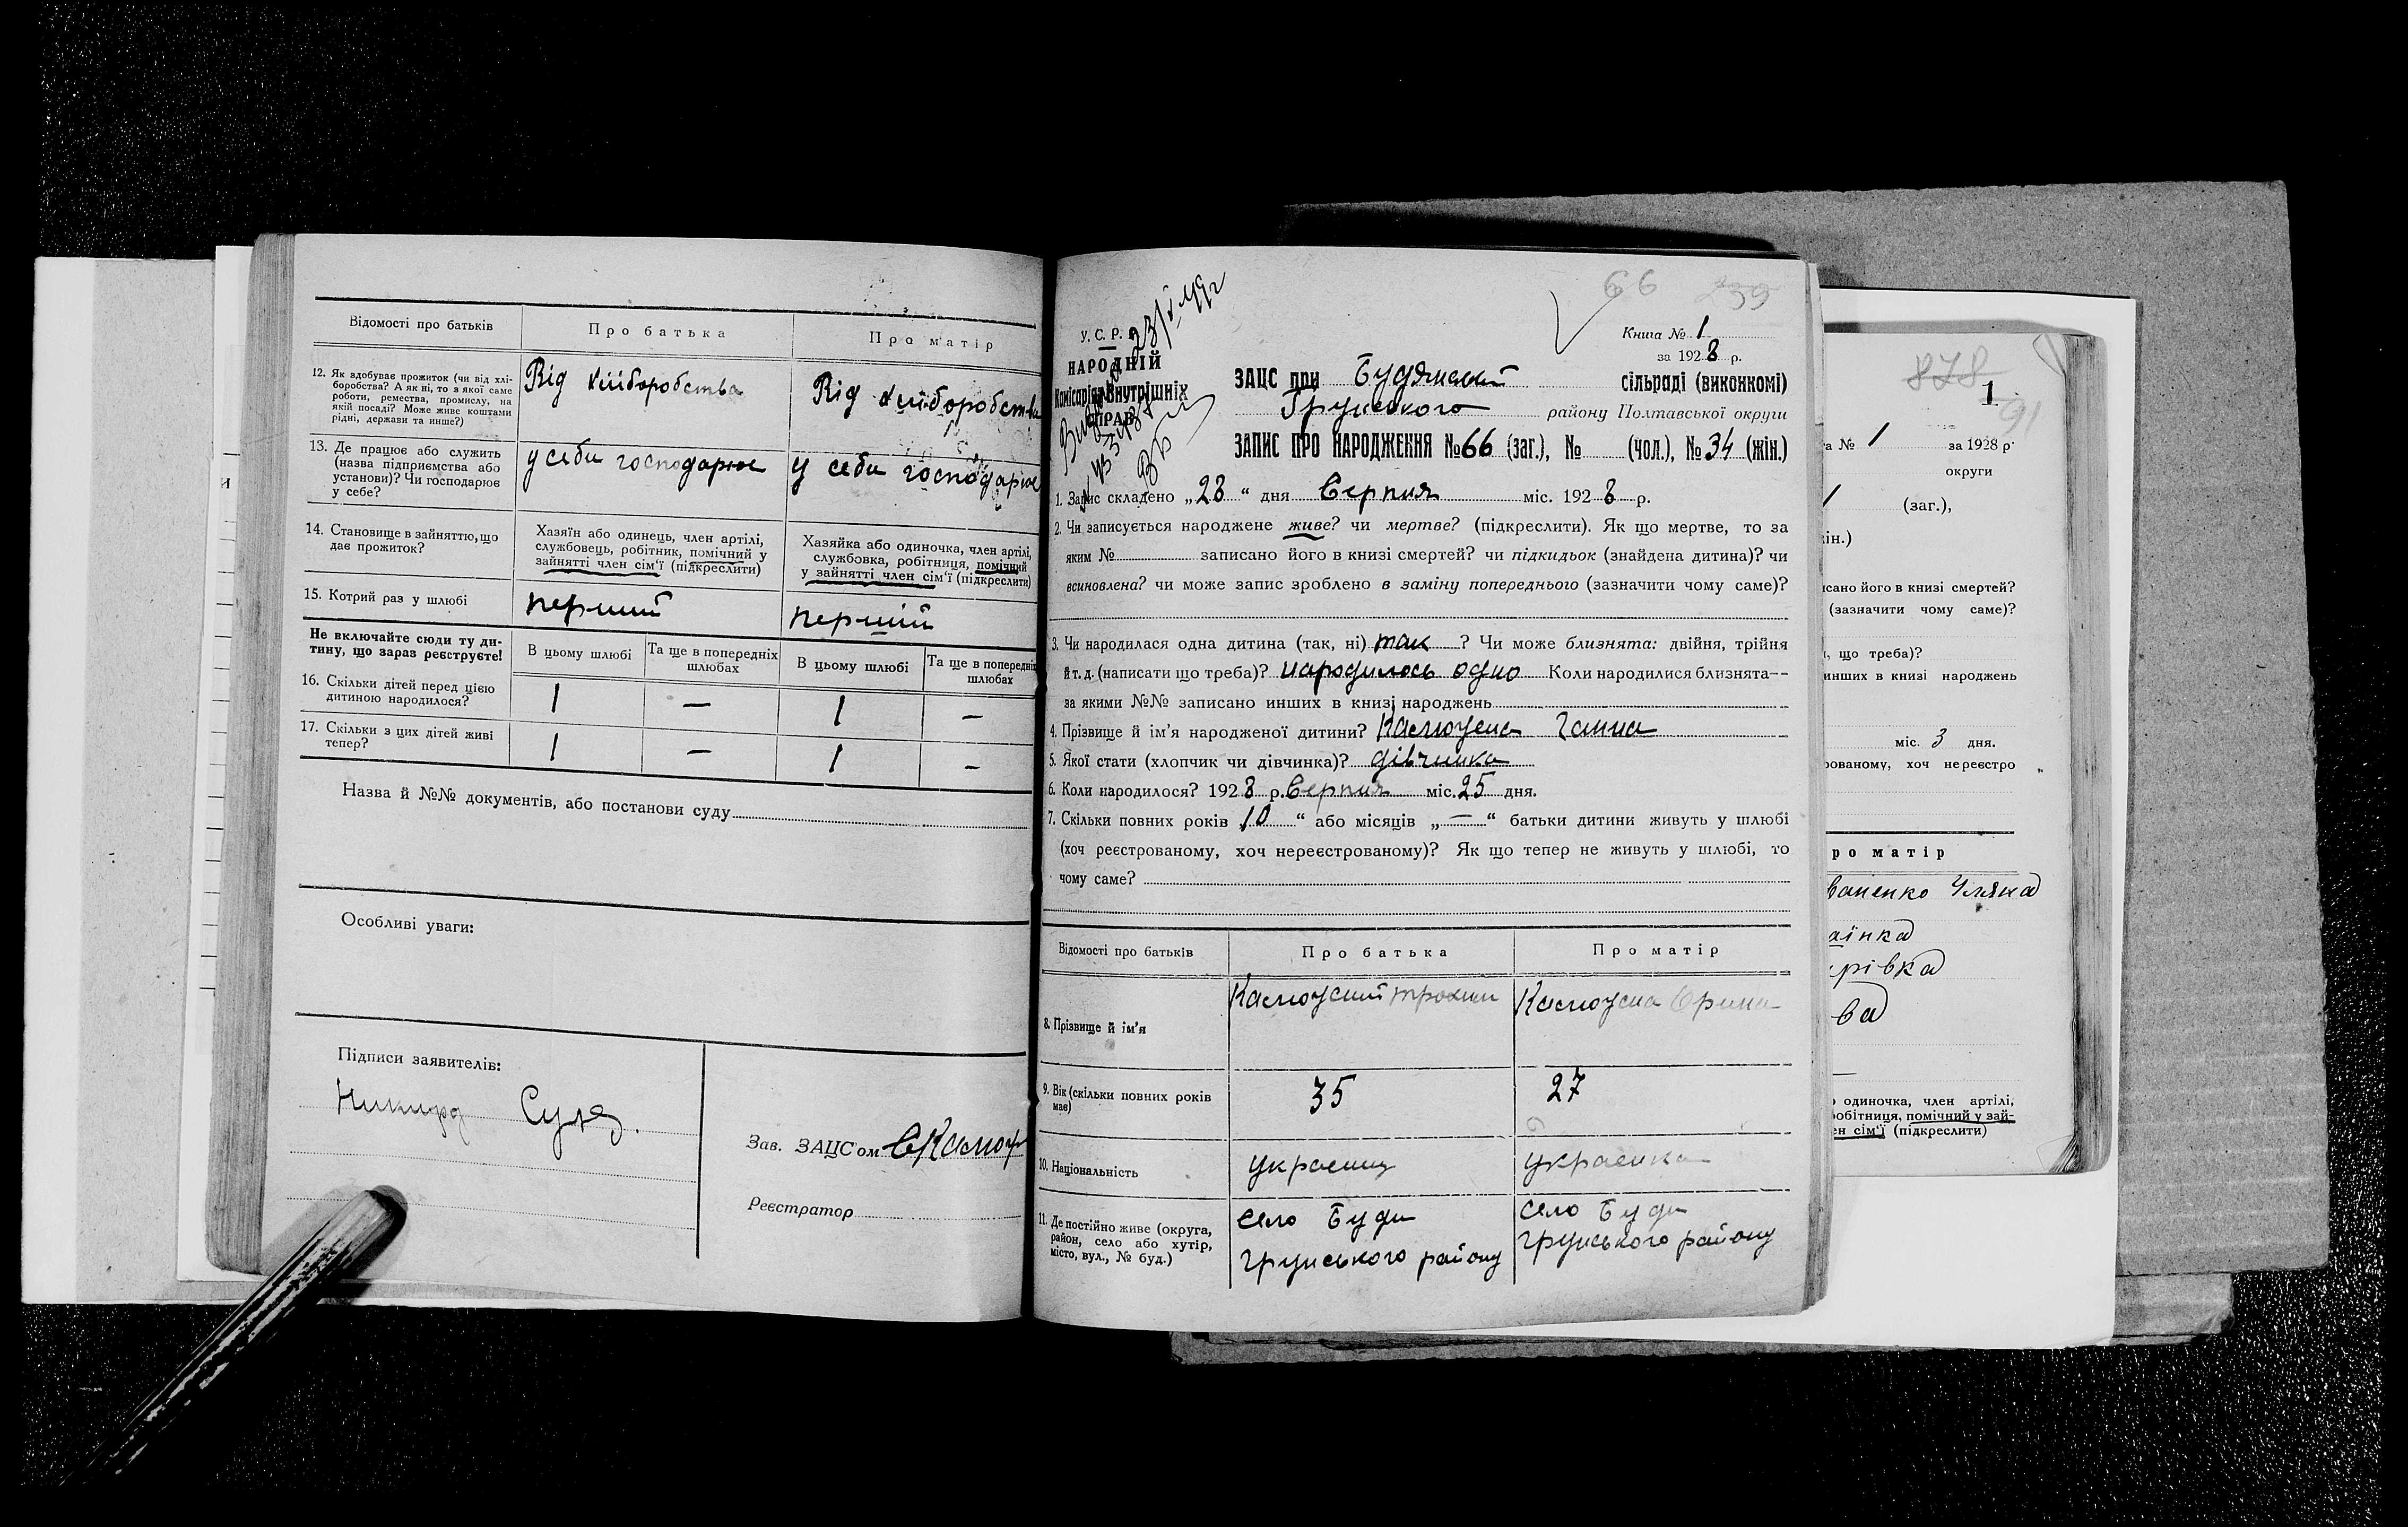 Відомості про батьків
Про батька
Про матір
12. Як здобуває прожиток (чи від хлі-
боробства? А як ні, то з якої саме
роботи, ремества, промислу, на
якій посаді? Може живе коштами
рідні, держави та инше?)
Від хліборобства
Від хліборобства
13. Де працює або служить
(назва підприємства або
установи)? Чи господарює
у себе?
у себи господарює
у себи господарює
14. Становище в зайняттю, що
дає прожиток?
Хазяїн або одинець, член артілі,
службовець, робітник, помічний у
зайнятті член сім'ї (підкреслити)
Хазяйка або одиночка, член артілі,
службовка, робітниця, помічний
у зайнятті член сім'ї (підкреслити)
15. Котрий раз у шлюбі
перший
перший
Не включайте сюди ту ди-
тину, що зараз реєструєте!
В цьому шлюбі
Та ще в попередніх
шлюбах
В цьому шлюбі
Та ще в попередніх
шлюбах
16. Скільки дітей перед цією
дитиною народилося?
1 — 1 —
17. Скільки з цих дітей живі
тепер?
1 — 1 —
Назва й №№ документів, або постанови суду
Особливі уваги:
Підписи заявителів:
Зав. ЗАЦС'ом
Реєстратор
66
23/I 49г
У. С. Р. Р.
НАРОДНІЙ
Комісаріят Внутрішніх
СПРАВ
Книга № 1
за 1928 р.
ЗАЦС при Будянській сільраді (виконкомі)
Грунського району Полтавської округи
ЗАПИС ПРО НАРОДЖЕННЯ № 66 (заг.), № (чол.), № 34 (жін.)
1. Запис складено „28“ дня Серпня міс. 1928 р.
2. Чи записується народжене живе? чи мертве? (підкреслити). Як що мертве, то за
яким № записано його в книзі смертей? чи підкидьок (знайдена дитина)? чи
всиновлена? чи може запис зроблено в заміну попереднього (зазначити чому саме)?
3. Чи народилася одна дитина (так, ні) так ? Чи може близнята: двійня, трійня
й т. д. (написати що треба)? народилось одно Коли народилися близнята--
за якими №№ записано инших в книзі народжень
4. Прізвище й ім'я народженої дитини? Ганна
5. Якої стати (хлопчик чи дівчинка)? дівчинка
6. Коли народилося? 1928 р. Серпня міс. 25 дня.
7. Скільки повних років „10“ або місяців „—“ батьки дитини живуть у шлюбі
(хоч реєстрованому, хоч нереєстрованому)? Як що тепер не живуть у шлюбі, то
чому саме?
Відомості про батьків
Про батька
Про матір
8. Прізвище й ім'я
9. Вік (скільки повних років
має)
35
27
10. Національність
украєнец
украєнка
11. Де постійно живе (округа,
район, село або хутір,
місто, вул., № буд.)
село Буди
грунського району
село Буди
грунського району
878
1
91
а № 1 за 1928 р.
округи
(заг.),
ін.)
исано його в книзі смертей?
(зазначити чому саме)?
, що треба)?
инших в книзі народжень
міс. 3 дня.
рованому, хоч нереєстро
ро матір
ваненко Уляна
аїнка
ва
одиночка, член артілі,
обітниця, помічний у зай-
ен сім'ї (підкреслити)